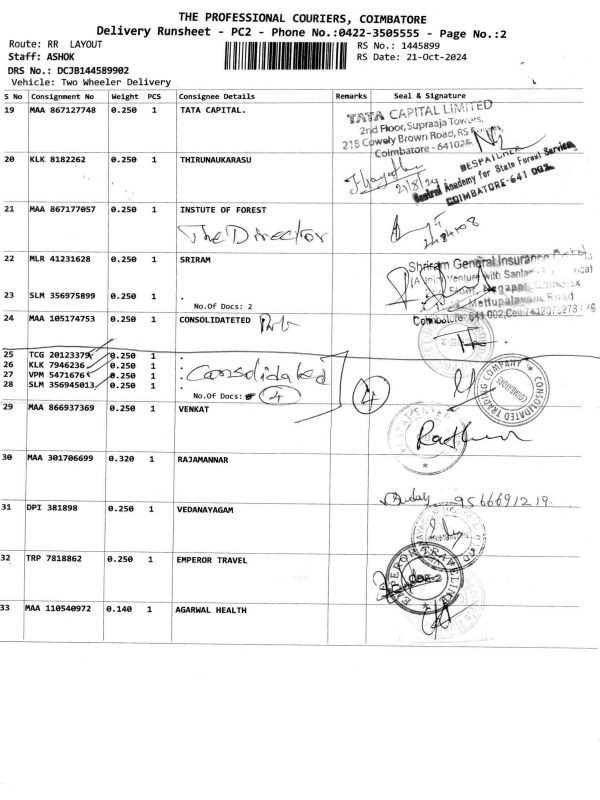 THE PROFESSIONAL COURIERS, COIMBATORE
Delivery Runsheet - PC2 - Phone No.:0422-3505555 - Page No.:2
Route: RR LAYOUT RS No.: 1445899
Staff: ASHOK RS Date: 21-Oct-2024
DRS No.: DCJB144589902
Vehicle: Two Wheeler Delivery
S No Consignment No Weight PCS Consignee Details Remarks Seal & Signature
19 MAA 867127748 0.250 1 TATA CAPITAL.
TATA CAPITAL LIMITED
2nd Floor, Supraaja Towers,
218 Cowely Brown Road, RS
Coimbatore - 641025
20 KLK 8182262 0.250 1 THIRUNAUKARASU
DESPATCHER
Academy for State Forest Service
COIMBATORE-641 002.
21 MAA 867177057 0.250 1 INSTUTE OF FOREST
The Director
22 MLR 41231628 0.250 1 SRIRAM
Shriram General Insurance
23 SLM 356975899 0.250 1 .
No.Of Docs: 2
Mettupalayam Road
24 MAA 105174753 0.250 1 CONSOLIDATETED
25 TCG 20123379 0.250 1 .
26 KLK 7946236 0.250 1 .
27 VPM 5471676 0.250 1 .
28 SLM 356945013 0.250 1 .
Consolidated
No.Of Docs: 4
4
CONSOLIDATED TRADING COMPANY
COIMBATORE
29 MAA 866937369 0.250 1 VENKAT
30 MAA 301706699 0.320 1 RAJAMANNAR
9566691219
31 DPI 381898 0.250 1 VEDANAYAGAM
32 TRP 7818862 0.250 1 EMPEROR TRAVEL
EMPEROR TRAVELINE
CBE-2
33 MAA 110540972 0.140 1 AGARWAL HEALTH